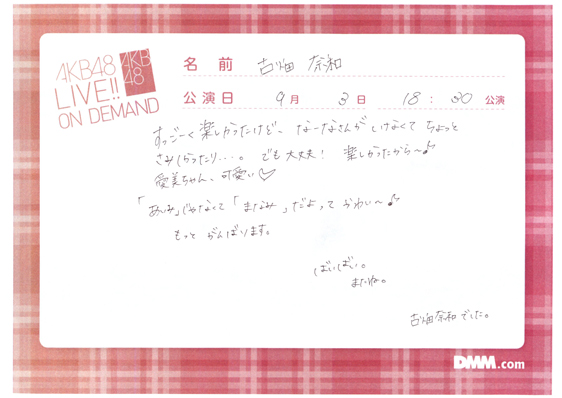 AKB48
LIVE!!
ON DEMAND
AKB
48
名 前 古畑 奈和
公演日 9月 3日 18:30 公演
すっごーく楽しかったけど〜 なーなさんがいなくて ちょっと
さみしかったり・・・。でも大丈夫! 楽しかったから〜♪
愛美ちゃん、可愛い♡
「あいみ」じゃなくて「まなみ」だよって かわい〜♪
もっと がんばります。
ばいばい。
またね。
古畑奈和でした。
DMM.com